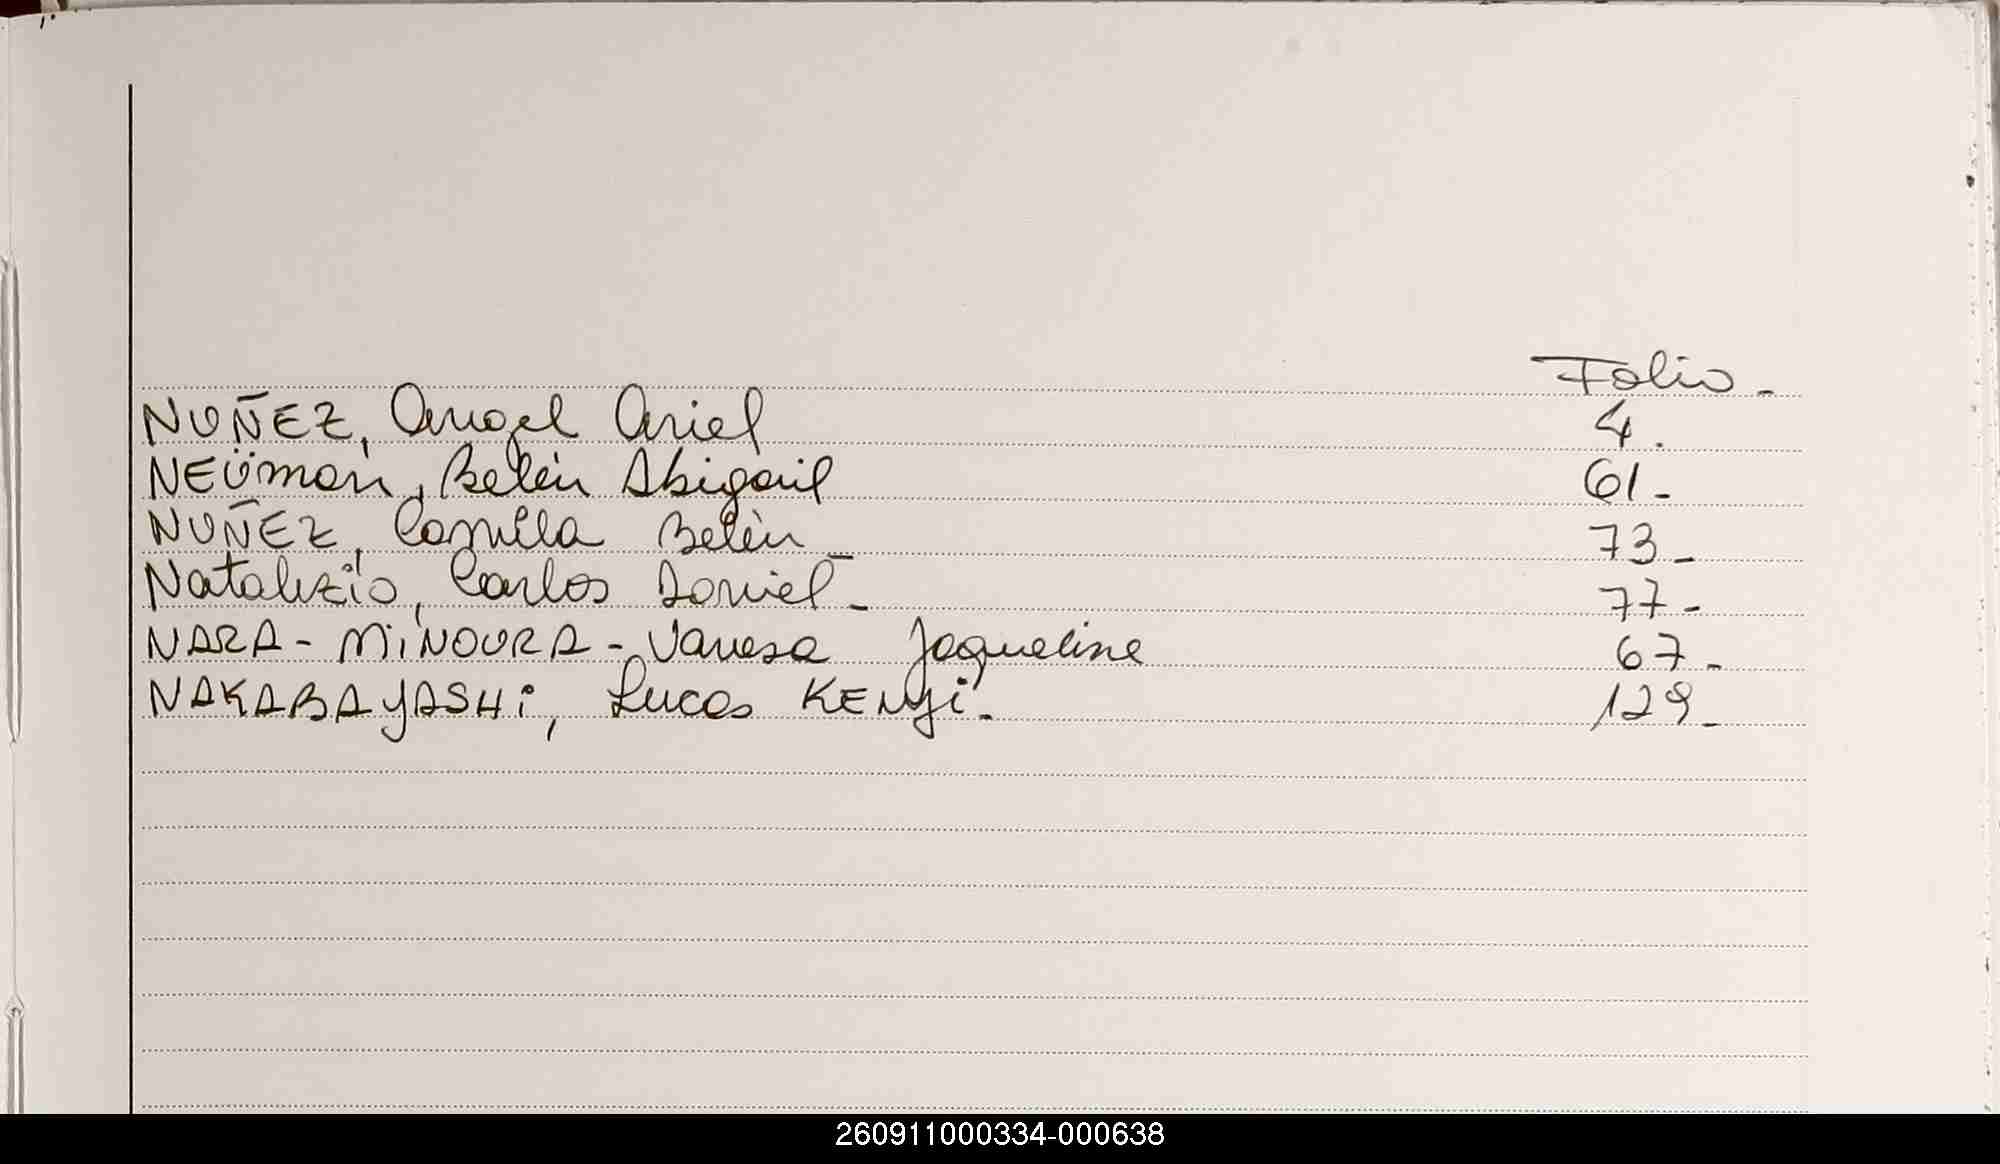 Folio -
NUÑEZ, Angel Ariel 4.
NEÜman, Belén Abigail 61-
NUÑEZ, Camila Belén - 73-
Natalizio, Carlos Daniel - 77-
NARA - MiNOURA - Vanesa Jaqueline 67-
NAKABAYASHi, Lucas KENJi. 129-
260911000334-000638